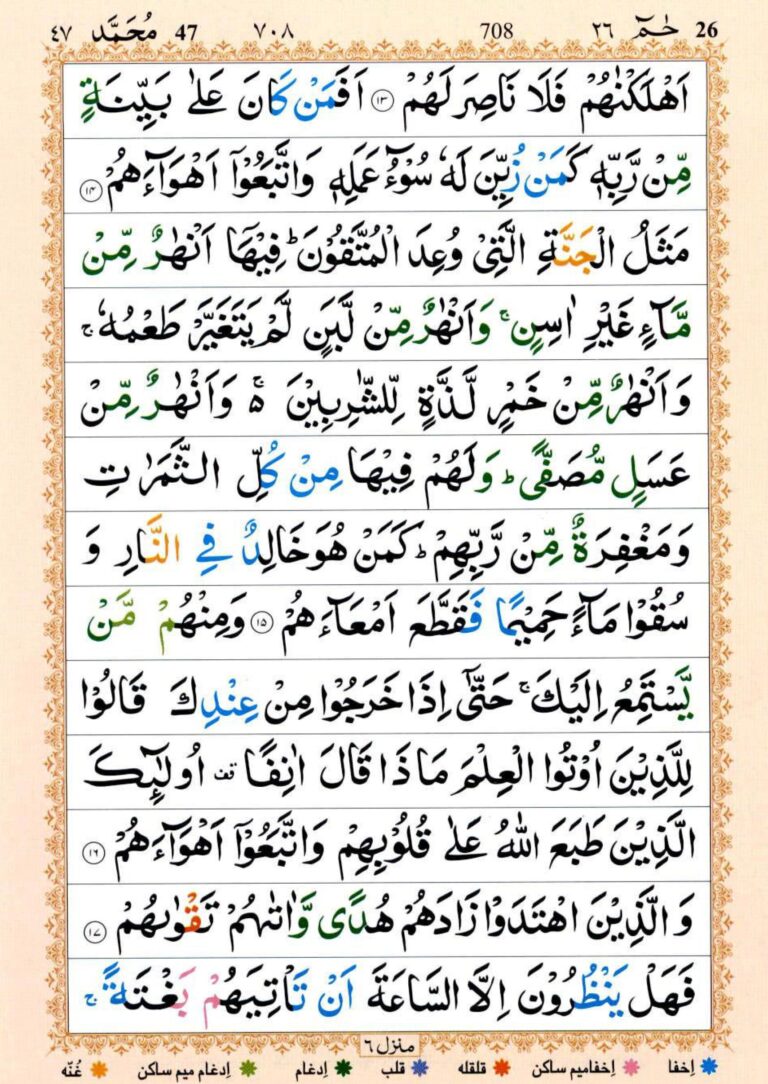 26 حٰمٓ ٢٦ 708 ٧٠٨ 47 مُحَمَّد ٤٧
اَهْلَكْنٰهُمْ فَلَا نَاصِرَ لَهُمْ ۝١٣ اَفَمَنْ كَانَ عَلٰى بَيِّنَةٍ
مِّنْ رَّبِّهٖ كَمَنْ زُيِّنَ لَهٗ سُوْٓءُ عَمَلِهٖ وَاتَّبَعُوْٓا اَهْوَآءَهُمْ ۝١٤
مَثَلُ الْجَنَّةِ الَّتِىْ وُعِدَ الْمُتَّقُوْنَ ؕ فِيْهَاۤ اَنْهٰرٌ مِّنْ
مَّآءٍ غَيْرِ اٰسِنٍ ۚ وَاَنْهٰرٌ مِّنْ لَّبَنٍ لَّمْ يَتَغَيَّرْ طَعْمُهٗ ۚ
وَاَنْهٰرٌ مِّنْ خَمْرٍ لَّذَّةٍ لِّلشّٰرِبِيْنَ ۚ۬ وَاَنْهٰرٌ مِّنْ
عَسَلٍ مُّصَفًّى ؕ وَلَهُمْ فِيْهَا مِنْ كُلِّ الثَّمَرٰتِ
وَمَغْفِرَةٌ مِّنْ رَّبِّهِمْ ؕ كَمَنْ هُوَ خَالِدٌ فِى النَّارِ وَ
سُقُوْا مَآءً حَمِيْمًا فَقَطَّعَ اَمْعَآءَهُمْ ۝١٥ وَمِنْهُمْ مَّنْ
يَّسْتَمِعُ اِلَيْكَ ۚ حَتّٰٓى اِذَا خَرَجُوْا مِنْ عِنْدِكَ قَالُوْا
لِلَّذِيْنَ اُوْتُوا الْعِلْمَ مَاذَا قَالَ اٰنِفًا ۫ اُولٰٓئِكَ
الَّذِيْنَ طَبَعَ اللّٰهُ عَلٰى قُلُوْبِهِمْ وَاتَّبَعُوْٓا اَهْوَآءَهُمْ ۝١٦
وَالَّذِيْنَ اهْتَدَوْا زَادَهُمْ هُدًى وَّاٰتٰىهُمْ تَقْوٰىهُمْ ۝١٧
فَهَلْ يَنْظُرُوْنَ اِلَّا السَّاعَةَ اَنْ تَاْتِيَهُمْ بَغْتَةً ۚ
منزل ٦
اِخفا اِخفامیم ساکن قلقله قلب اِدغام اِدغام میم ساکن غُنّه